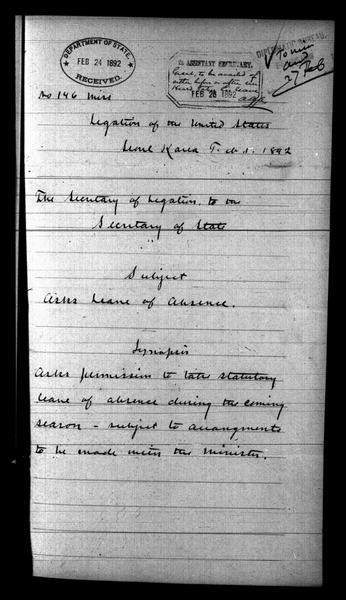 DEPARTMENT OF STATE,
FEB 24 1892
RECEIVED.
ASSISTANT SECRETARY.
FEB 26 1892
DIPLOMATIC BUREAU.
27 Feb
No 146 Misc
Legation of the United States
Seoul Korea Feb. 1. 1892
The Secretary of Legation, to the
Secretary of State
Subject
Asks Leave of Absence.
Synopsis
Asks permission to take statutory
leave of absence during the coming
season - subject to arrangments
to be made with the Minister.